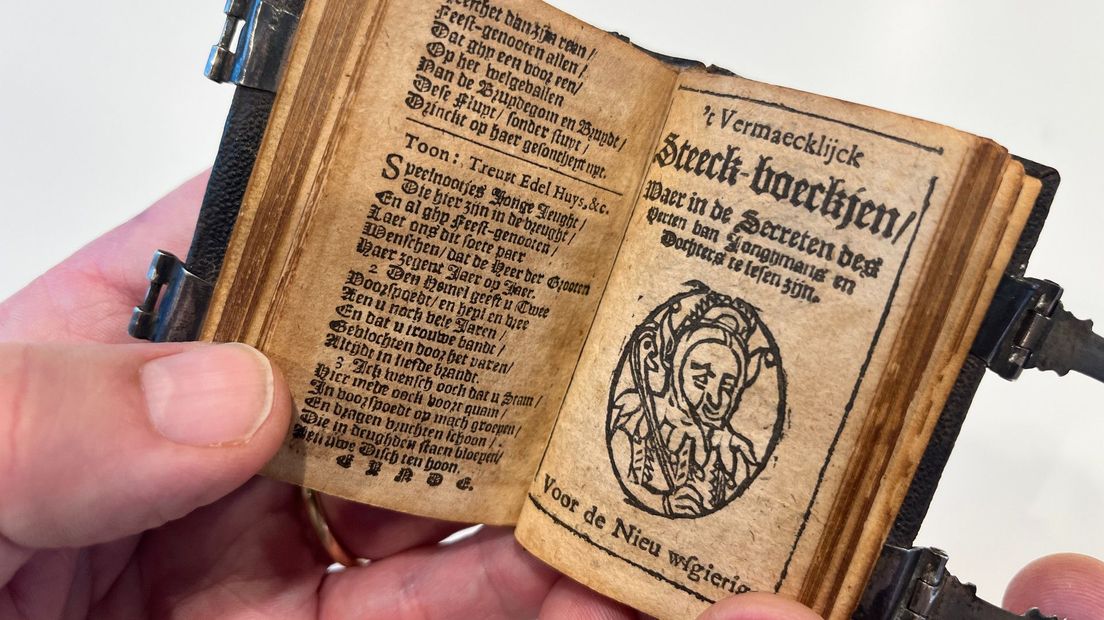 dan zijn reen/
Feest-genooten allen/
Dat ghy een voor een/
Op het welgevallen
Van de Bruydegom en Bruydt/
Dese Fluyt/ sonder stuyt/
Drinckt op haer gesontheyt uyt.
Toon: Treurt Edel Huys, &c.
Speelnootjes Jonge Jeught/
Die hier zijn in de vreught/
En al ghy Feest-genooten/
Laet ons dit soete paer
Wenschen/ dat de Heer der Grooten
Haer zegent Jaer op Jaer.
2 Den Hemel geeft u Twee
Voorspoedt/ en heyl en vree
Aen u noch vele Jaren/
En dat u trouwe bandt/
Gevlochten door het paren/
Altijdt in liefde brandt.
3 Ick wensch ooch dat u Stam/
Hier mede oock voort quam/
In voorspoedt op mach groeyen/
En dragen vruchten schoon/
Die in deughden staen bloeyen/
Aen uwe Disch ten toon.
EYNDE.
't Vermaecklijck
Steeck-boeckjen/
Waer in de Secreten des
Herten van Jongmans en
Dochters te lesen zijn.
Voor de Nieuwsgierig